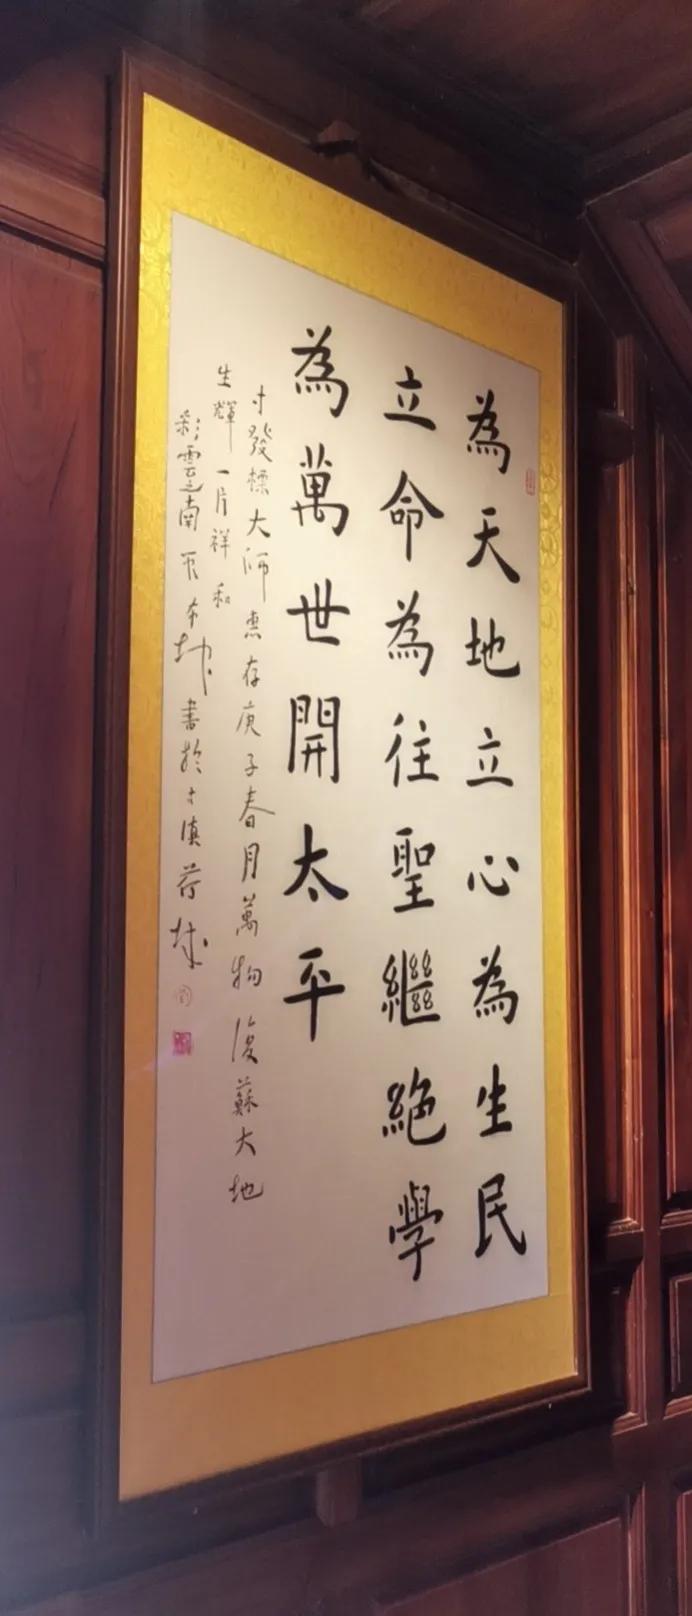 為天地立心為生民
立命為往聖繼絕學
為萬世開太平
寸發標大師惠存庚子春月萬物復蘇大地
生輝一片祥和
彩雲之南 書於古滇荷城